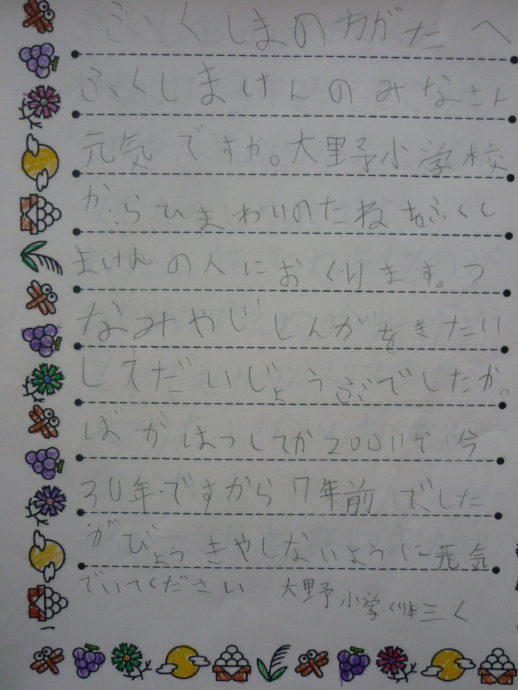 ふくしまのかがたへ
ふくしまけんのみなさん
元気ですか。大野小学校
からひまわりのたねをふくし
まけんの人におくります。つ
なみやじしんがをきたり
しえだいじょうぶでしたか。
ばかはつしてか2011で今
30年ですから7年前でした
がびょうきやしないように元気
でいてください 大野小学